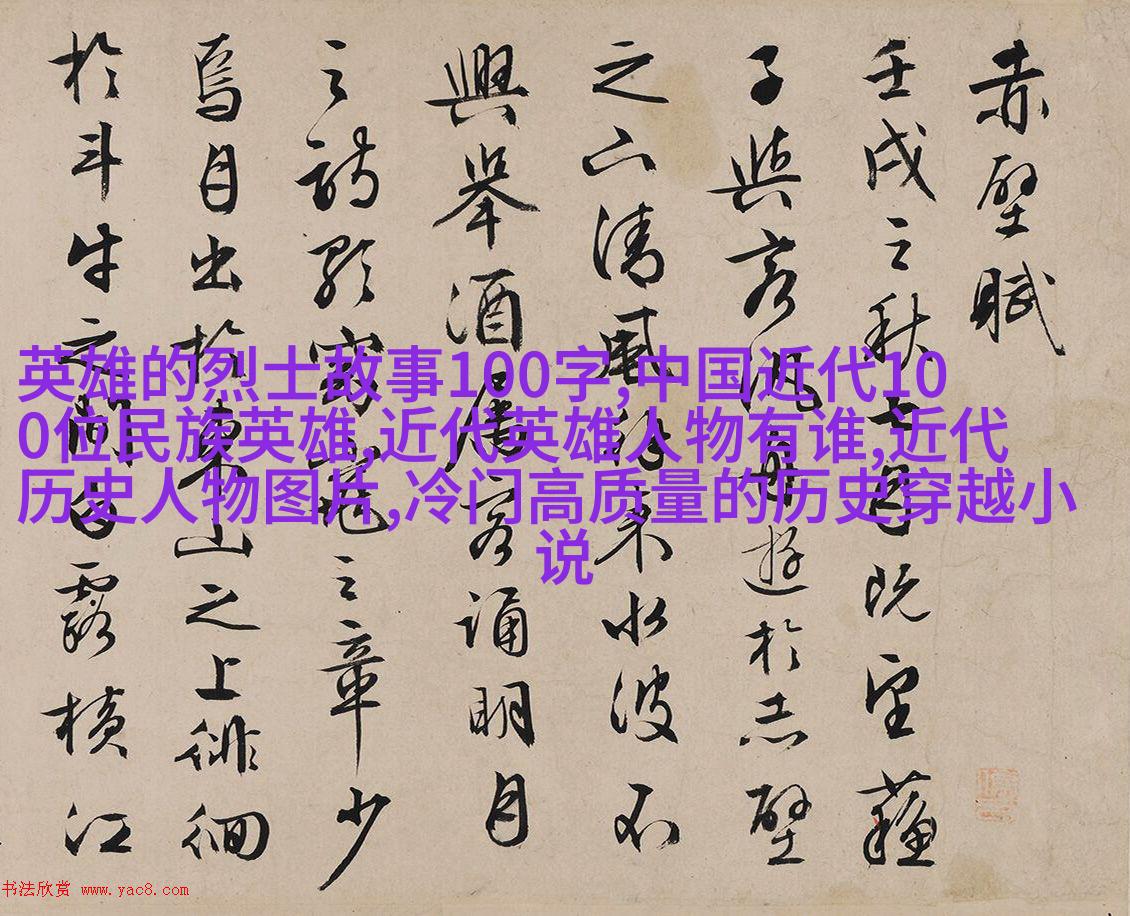 赤壁賦
壬戌之秋七月既望蘇
子與客泛舟遊於赤壁
之下清風徐來水波不
興舉酒屬客誦明月
之詩歌窈窕之章少
焉月出於東山之上徘徊
於斗牛之間白露橫江
英雄的烈士故事100字,中国近代10
0位民族英雄,近代英雄人物有谁,近代
历史人物图片,冷门高质量的历史穿越小
说
书法欣赏 www.yac8.com